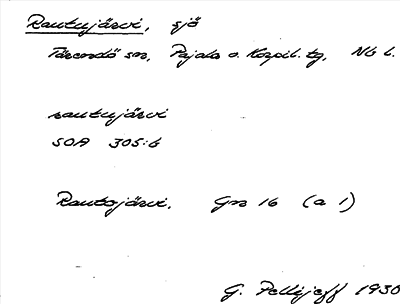 Rautujärvi, sjö
Tärendö sn, Pajala o. Korpil. tg, Nb l.
rautujärvi
SOA 305:6
Rautojärvi. Gn 16 (a 1)
G. Pellijeff 1930